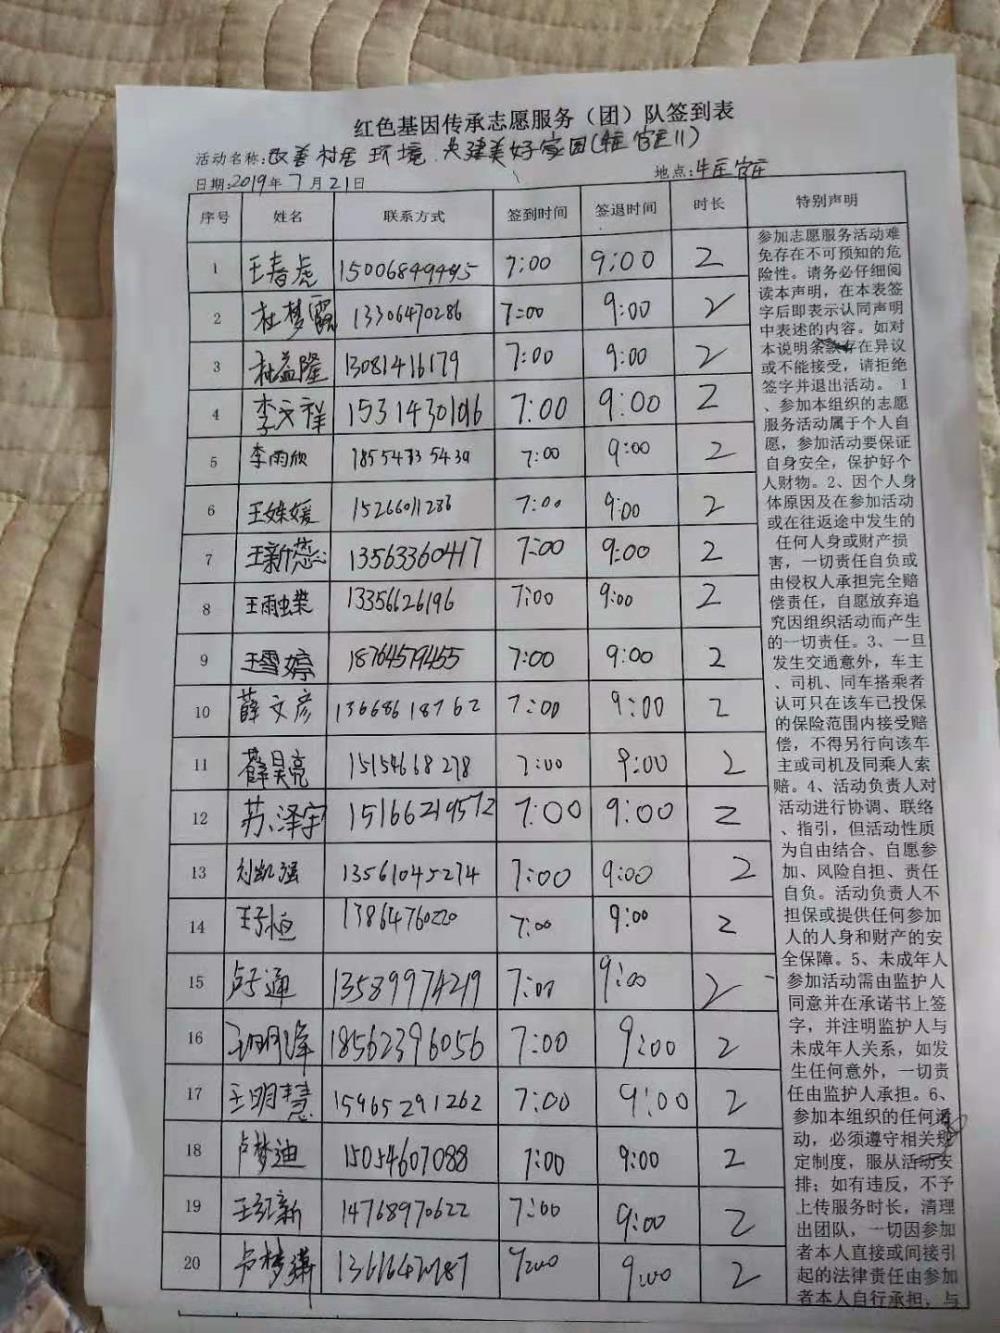 红色基因传承志愿服务（团）队签到表
活动名称:改善村居环境、共建美好家园(牛庄官庄11)
日期:2019年7月21日 地点:牛庄官庄
序号 姓名 联系方式 签到时间 签退时间 时长 特别声明
1 王春虎 15006849495 7:00 9:00 2
2 杜梦霞 13306470286 7:00 9:00 2
3 杜益隆 13081416179 7:00 9:00 2
4 李文祥 7:00 9:00 2
5 李雨欣 7:00 9:00 2
6 王姝媛 15266011286 7:00 9:00 2
7 王新蕊 13563360417 7:00 9:00 2
8 13356626196 7:00 9:00 2
9 王雪婷 18764579455 7:00 9:00 2
10 薛文彦 13668618762 7:00 9:00 2
11 薛昊亮 15154668278 7:00 9:00 2
12 苏泽宇 15166219572 7:00 9:00 2
13 刘凯强 13561045274 7:00 9:00 2
14 王子恒 13864760220 7:00 9:00 2
15 卢子通 13589974219 7:00 9:00 2
16 18562396056 7:00 9:00 2
17 王明慧 15965291262 7:00 9:00 2
18 卢梦迪 15054607088 7:00 9:00 2
19 王红新 14768970622 7:00 9:00 2
20 卢梦 7:00 9:00 2
参加志愿服务活动难
免存在不可预知的危
险性。请务必仔细阅
读本声明，在本表签
字后即表示认同声明
中表述的内容。如对
本说明条款存在异议
或不能接受，请拒绝
签字并退出活动。 1
、参加本组织的志愿
服务活动属于个人自
愿，参加活动要保证
自身安全，保护好个
人财物。2、因个人身
体原因及在参加活动
或在往返途中发生的
任何人身或财产损
害，一切责任自负或
由侵权人承担完全赔
偿责任，自愿放弃追
究因组织活动而产生
的一切责任。3、一旦
发生交通意外，车主
、司机、同车搭乘者
认可只在该车已投保
的保险范围内接受赔
偿，不得另行向该车
主或司机及同乘人索
赔。4、活动负责人对
活动进行协调、联络
、指引，但活动性质
为自由结合、自愿参
加、风险自担、责任
自负。活动负责人不
担保或提供任何参加
人的人身和财产的安
全保障。5、未成年人
参加活动需由监护人
同意并在承诺书上签
字，并注明监护人与
未成年人关系，如发
生任何意外，一切责
任由监护人承担。6、
参加本组织的任何活
动，必须遵守相关规
定制度，服从活动安
排；如有违反，不予
上传服务时长，清理
出团队，一切因参加
者本人直接或间接引
起的法律责任由参加
者本人自行承担，与